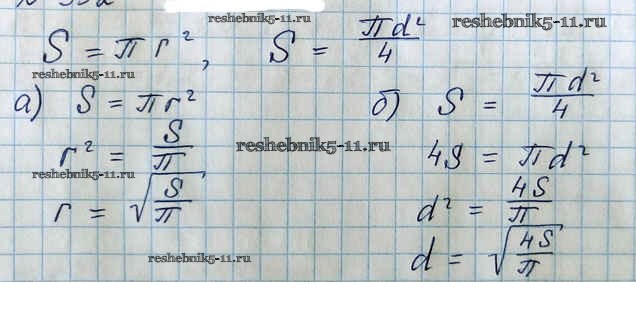 reshebnik5-11.ru
S = πr², S = πd²/4
reshebnik5-11.ru
reshebnik5-11.ru
а) S = πr² б) S = πd²/4
r² = S/π 4S = πd²
reshebnik5-11.ru
reshebnik5-11.ru
r = √(S/π) d² = 4S/π
d = √(4S/π)
reshebnik5-11.ru